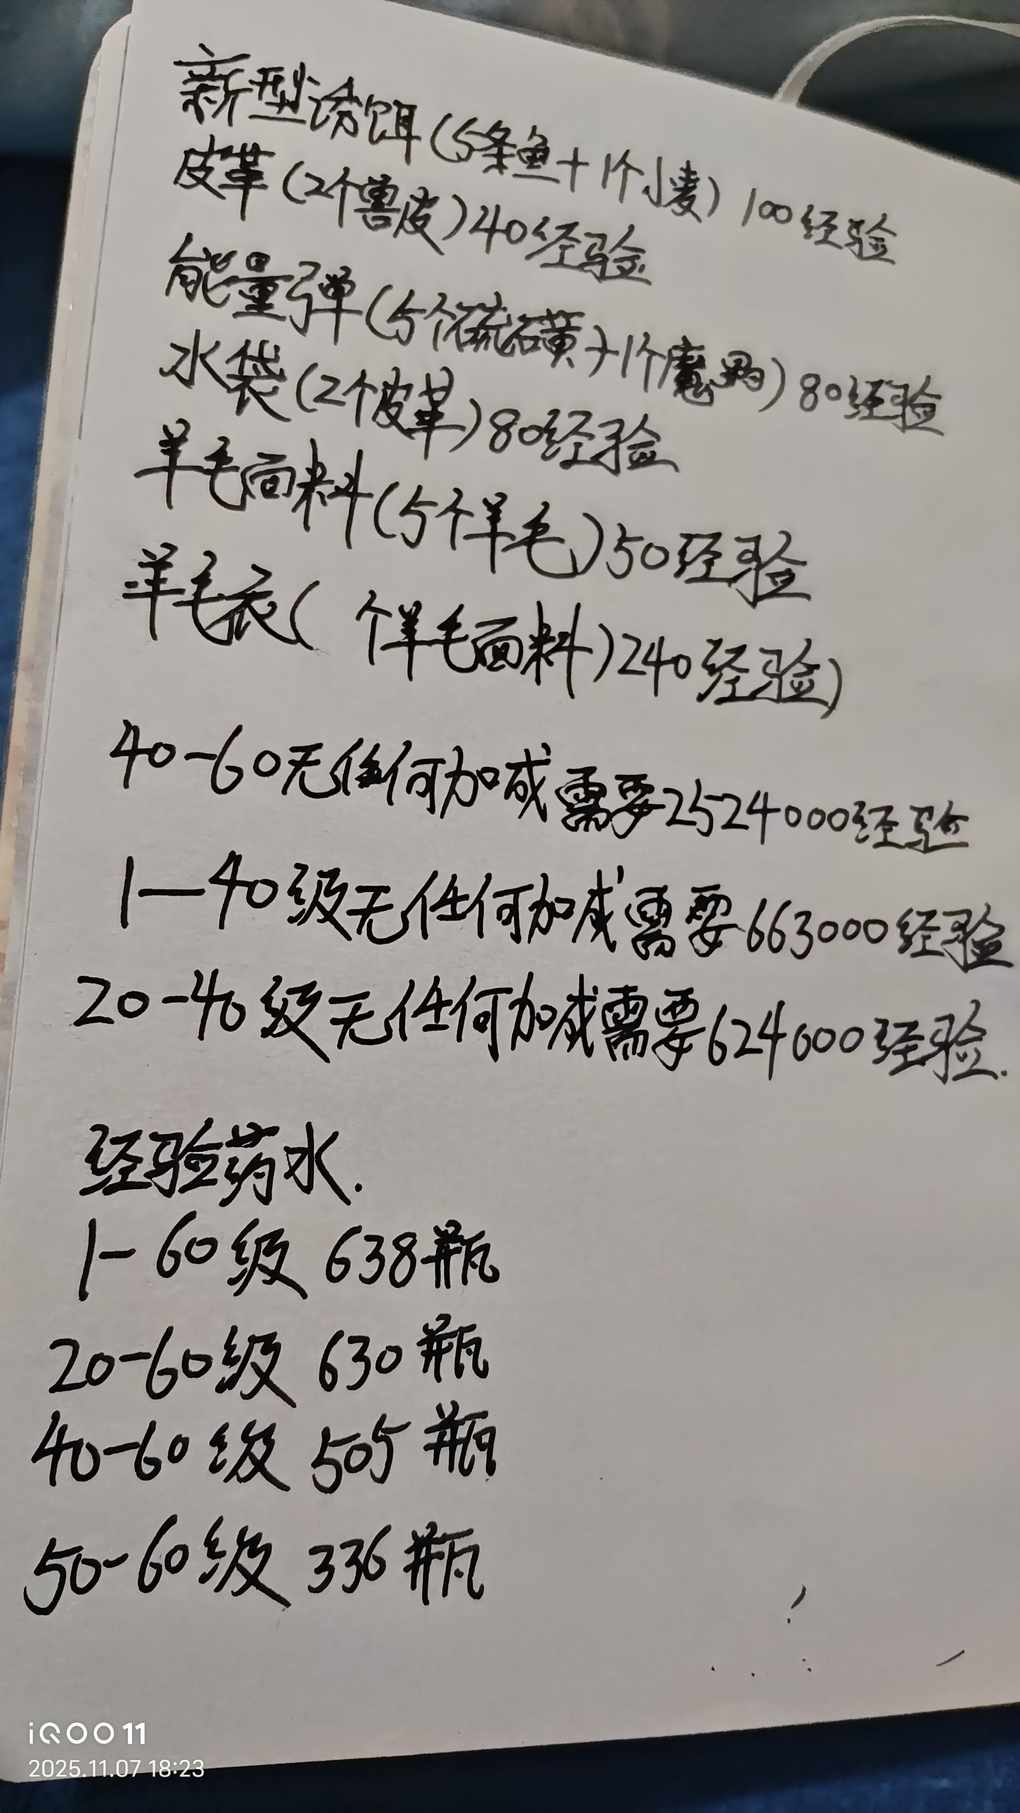 新型诱饵(5条鱼+1个小麦) 100经验
皮革(2个兽皮)40经验
能量弹(5个硫磺+1个魔药) 80经验
水袋(2个皮革)80经验
羊毛面料(5个羊毛)50经验
羊毛衣( 个羊毛面料)240经验)
40-60无任何加成需要2524000经验
1—40级无任何加成需要663000经验
20-40级无任何加成需要624000经验.
经验药水.
1-60级 638瓶
20-60级 630瓶
40-60级 505瓶
50-60级 336瓶
iQOO 11
2025.11.07 18:23